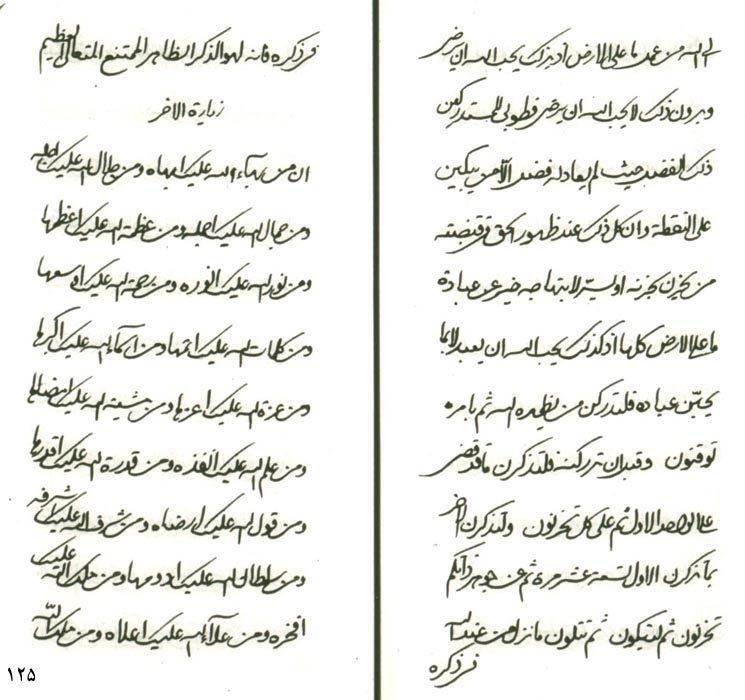 الی الله من عمل ما علی الارض اذ بذلک یحب الله ان یرضی
و بدون ذلک لا یحب الله ان یرضی فطوبی للمستدرکین
ذلک الفضل حیث لم یعادله فضل الا من یبکین
علی النقطة و ان کل ذلک عند ظهور الحق فی قبضته
من یحزن بحزنه او یسر لابتهاجه خیر عن عبادة
ما علی الارض کلها اذ کذلک یحب الله ان یعبد لا بما
یحبن عباده فلتدرکن من یظهره الله ثم بامره
توقنون و قبل ان تدرکنه فلتذکرن ما قد قضی
علی الواحد الاول ثم علی کل تحزنون ولتذکرن
بما تذکرن الاول تسعة عشر مرة ثم عن جوهر ذاتکم
تحزنون ثم لتبکیون ثم تتلون ما نزل من عند الله
فی ذکره
فی ذکره فانه لهو الذکر الظاهر الممتنع المتعالی العظیم
زیارة الاخر
ان من بهاء الله علیک ابهاه و من جلال الله علیک اجله
و من جمال الله علیک اجمله و من عظمة الله علیک اعظمها
و من نور الله علیک انوره و من رحمة الله علیک اوسعها
و من کلمات الله علیک اتمها و من اسماء الله علیک اکبرها
و من عزة الله علیک اعزها و من مشیة الله علیک امضاها
و من علم الله علیک انفذه و من قدرة الله علیک اقدرها
و من قول الله علیک ارضاه و من شرف الله علیک اشرفه
و من سلطان الله علیک ادومها و من ملک الله علیک
افخره و من علاء الله علیک اعلاه و من
۱۲۵